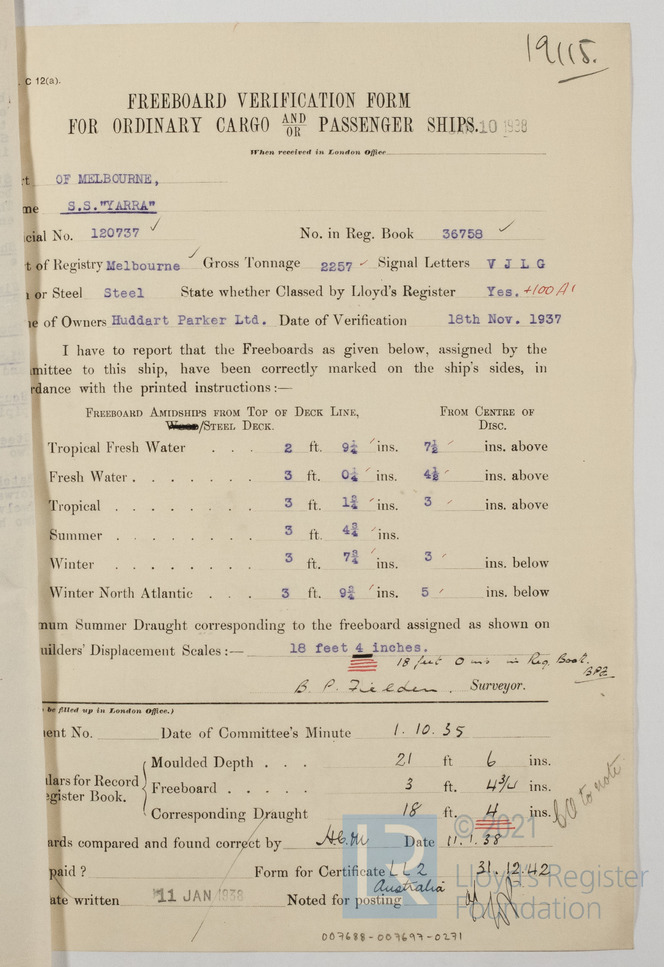 19115.
C 12(a).
FREEBOARD VERIFICATION FORM
FOR ORDINARY CARGO AND/OR PASSENGER SHIPS.
JAN 10 1938
When received in London Office
OF MELBOURNE,
S.S."YARRA"
cial No. 120737 ✓ No. in Reg. Book 36758 ✓
t of Registry Melbourne ✓ Gross Tonnage 2257 ✓ Signal Letters V J L G
or Steel Steel State whether Classed by Lloyd's Register Yes. +100 A1
e of Owners Huddart Parker Ltd. Date of Verification 18th Nov. 1937
I have to report that the Freeboards as given below, assigned by the
mittee to this ship, have been correctly marked on the ship's sides, in
rdance with the printed instructions :—
FREEBOARD AMIDSHIPS FROM TOP OF DECK LINE, FROM CENTRE OF
/STEEL DECK. DISC.
Tropical Fresh Water . . . 2 ft. 9¼ ins. 7½ ins. above
Fresh Water . . . . . . . 3 ft. 0¼ ins. 4½ ins. above
Tropical . . . . . . . . 3 ft. 1¾ ins. 3 ins. above
Summer . . . . . . . 3 ft. 4¾ ins.
Winter . . . . . . . 3 ft. 7¾ ins. 3 ins. below
Winter North Atlantic . . . 3 ft. 9¾ ins. 5 ins. below
num Summer Draught corresponding to the freeboard assigned as shown on
uilders' Displacement Scales :— 18 feet 4 inches.
18 feet 0 ins in Reg. Book.
B. P. Fielden. Surveyor.
be filled up in London Office.)
ent No. Date of Committee's Minute 1.10.35
Moulded Depth . . . 21 ft 6 ins.
lars for Record Freeboard . . . . . 3 ft. 4¾ ins.
egister Book. Corresponding Draught 18 ft. 4 ins.
to note.
ards compared and found correct by Date 11.1.38
paid ? Form for Certificate LL2 31.12.42
ate written 11 JAN 1938 Noted for posting Australia
© 2021
Lloyd's Register
Foundation
LR
007688-007697-0271